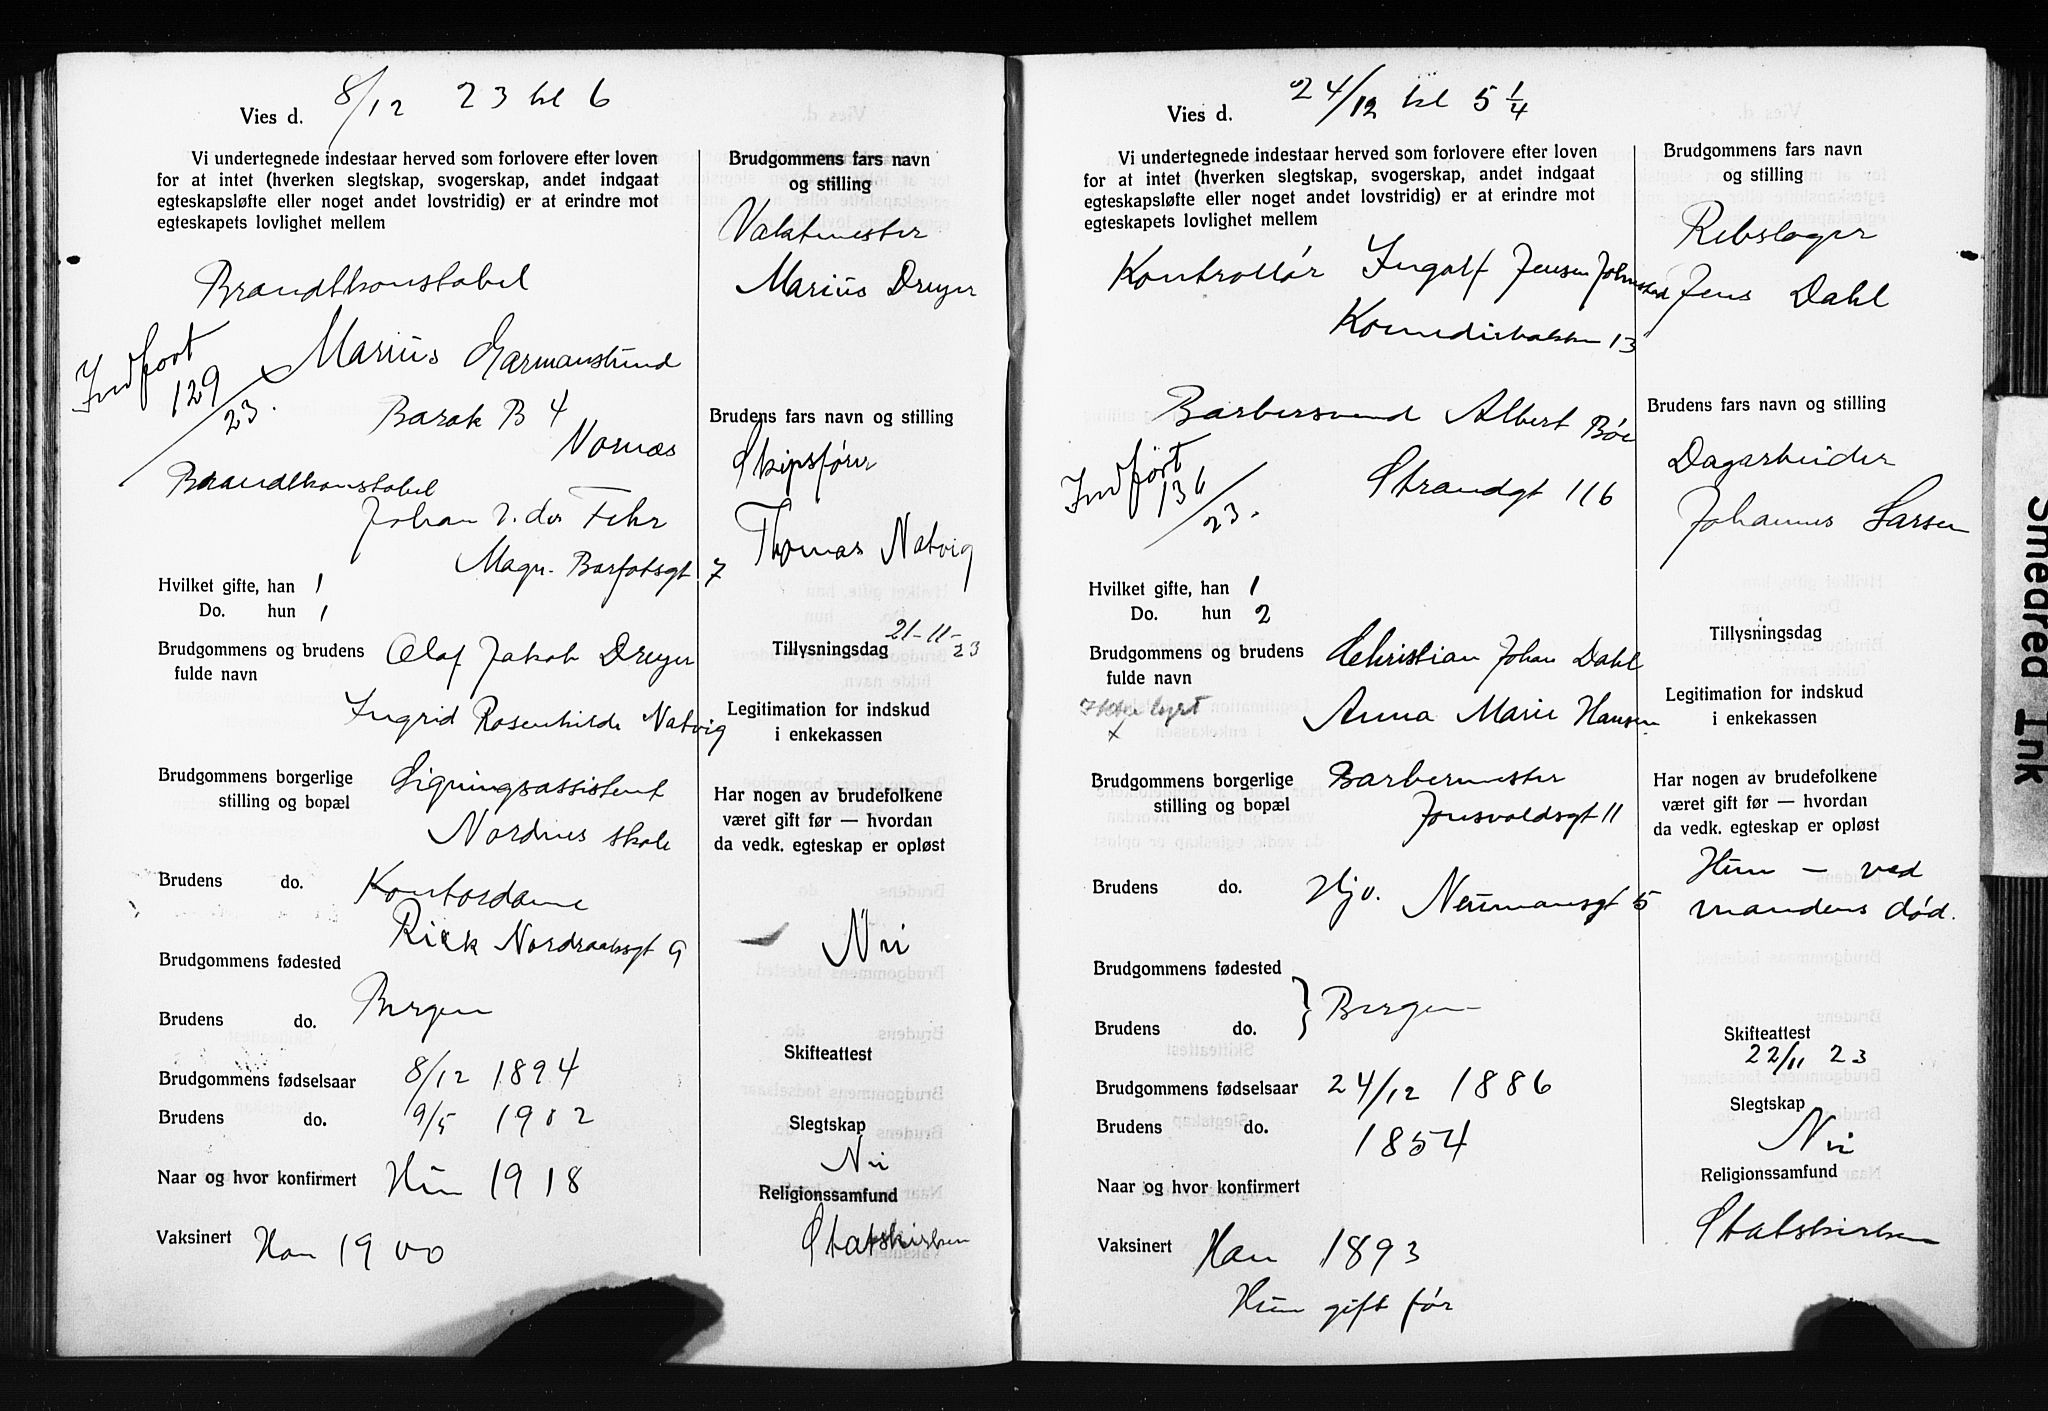 Vies d. 8/12 23 kl 6
Vi undertegnede indestaar herved som forlovere efter loven
for at intet (hverken slegtskap, svogerskap, andet indgaat
egteskapsløfte eller noget andet lovstridig) er at erindre mot
egteskapets lovlighet mellem
Brandtkonstabel
Marius Garmanslund
Indført
129
23.
Barak B 4
Nornæs
Brandtkonstabel
Johan v. der Fehr
Magn. Barfotsgt 7
Hvilket gifte, han 1
Do. hun 1
Brudgommens og brudens
fulde navn
Olaf Jakob Dreyer
Ingrid Rosenhilde Natvig
Brudgommens borgerlige
stilling og bopæl
Ligningsassistent
Nordnes skole
Brudens do. Kontordame
Rick Nordraaksgt 9
Brudgommens fødested
Bergen
Brudens do.
Brudgommens fødselsaar 8/12 1894
Brudens do. 9/5 1902
Naar og hvor konfirmert Hun 1918
Vaksinert Han 1900
Brudgommens fars navn
og stilling
Vaktmester
Marius Dreyer
Brudens fars navn og stilling
Skipsfører
Thomas Natvig
Tillysningsdag 21-11-23
Legitimation for indskud
i enkekassen
Har nogen av brudefolkene
været gift før — hvordan
da vedk. egteskap er opløst
Nei
Skifteattest
Slegtskap
Nei
Religionssamfund
Statskirken
Vies d. 24/12 kl 5 1/4
Vi undertegnede indestaar herved som forlovere efter loven
for at intet (hverken slegtskap, svogerskap, andet indgaat
egteskapsløfte eller noget andet lovstridig) er at erindre mot
egteskapets lovlighet mellem
Kontrollør Ingolf Jensen
13
Barbersvend Albert Bøe
Strandgt 116
Indført
136
23.
Hvilket gifte, han 1
Do. hun 2
Brudgommens og brudens
fulde navn
Christian Johan Dahl
Anna Marie Hansen
Ikke lyst
x
Brudgommens borgerlige
stilling og bopæl
Barbermester
Jonsvoldsgt 11
Brudens do. Hjv. Neumansgt 5
Brudgommens fødested
Bergen
Brudens do.
Brudgommens fødselsaar 24/12 1886
Brudens do. 1854
Naar og hvor konfirmert
Vaksinert Han 1893
Hun gift før
Brudgommens fars navn
og stilling
Rebslager
Jens Dahl
Brudens fars navn og stilling
Dagarbeider
Johannes Larsen
Tillysningsdag
Legitimation for indskud
i enkekassen
Har nogen av brudefolkene
været gift før — hvordan
da vedk. egteskap er opløst
Hun – ved
mandens død.
Skifteattest
22/11 23
Slegtskap
Nei
Religionssamfund
Statskirken
Smedred Ink